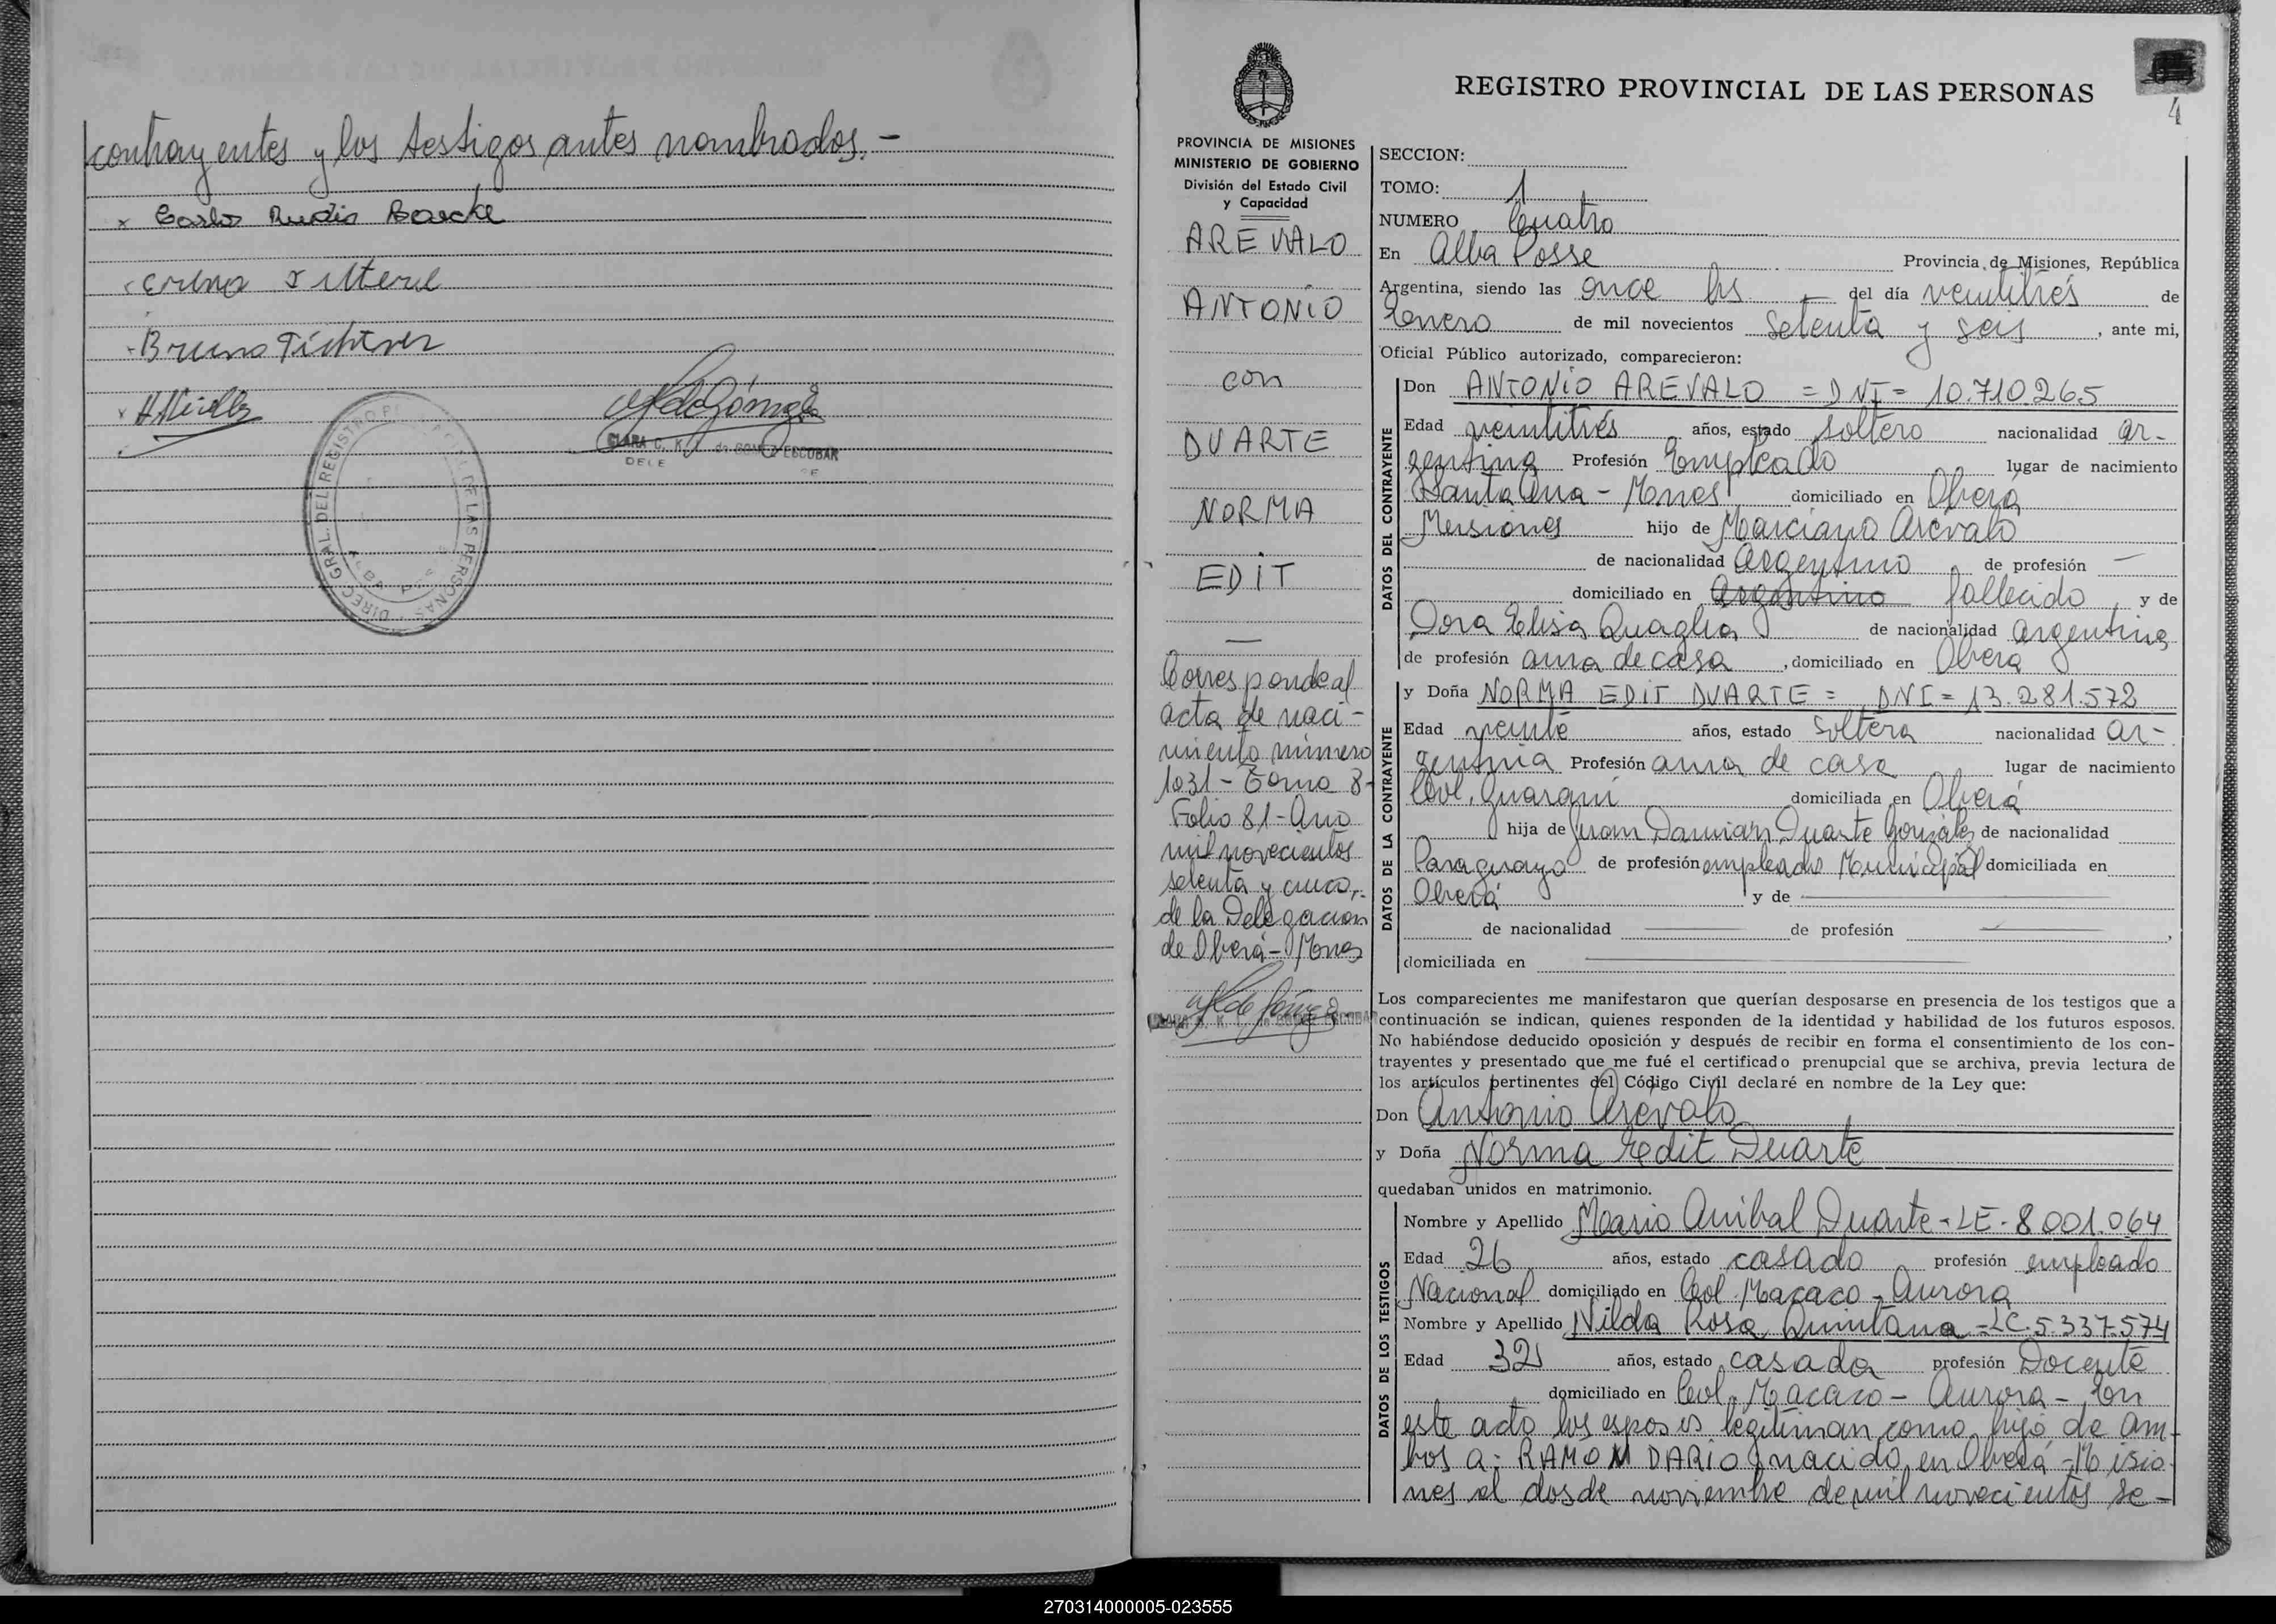 contrayentes y los testigos antes nombrados.-
x Carlos
Bruno Fichtner
CLARA C. K. de GOMEZ ESCOBAR
DIREC. GRAL. DEL REGISTRO DE LAS PERSONAS
ALBA POSSE
REGISTRO PROVINCIAL DE LAS PERSONAS
4
PROVINCIA DE MISIONES
MINISTERIO DE GOBIERNO
División del Estado Civil
y Capacidad
AREVALO
ANTONIO
con
DUARTE
NORMA
EDIT
—
Corresponde al
acta de naci-
miento número
1031 - Tomo 8-
Folio 81 - Año
mil novecientos
setenta y cinco,-
de la Delegacion
de Oberá - Mnes
CLARA C. K. de GOMEZ ESCOBAR
SECCION:
TOMO: 1
NUMERO Cuatro
En Alba Posse Provincia de Misiones, República
Argentina, siendo las once hs — del día veintitrés de
Enero de mil novecientos Setenta y seis, ante mi,
Oficial Público autorizado, comparecieron:
DATOS DEL CONTRAYENTE
Don ANTONIO AREVALO = DNI = 10.710.265
Edad veintitrés años, estado soltero nacionalidad ar-
gentina Profesión Empleado lugar de nacimiento
Santa Ana - Mnes domiciliado en Oberá
Misiones hijo de Marciano Arévalo
de nacionalidad Argentino de profesión —
domiciliado en Argentino fallecido, y de
Dora Elisa Quaglia de nacionalidad argentina
de profesión ama de casa, domiciliado en Oberá
DATOS DE LA CONTRAYENTE
y Doña NORMA EDIT DUARTE = DNI = 13.281.572
Edad veinte años, estado Soltera nacionalidad ar-
gentina Profesión ama de casa lugar de nacimiento
Col. Guaraní domiciliada en Oberá
hija de Juan Damian Duarte González de nacionalidad
Paraguayo de profesión empleado Municipal domiciliada en
Oberá y de —
de nacionalidad — de profesión —,
domiciliada en —
Los comparecientes me manifestaron que querían desposarse en presencia de los testigos que a
continuación se indican, quienes responden de la identidad y habilidad de los futuros esposos.
No habiéndose deducido oposición y después de recibir en forma el consentimiento de los con-
trayentes y presentado que me fué el certificado prenupcial que se archiva, previa lectura de
los artículos pertinentes del Código Civil declaré en nombre de la Ley que:
Don Antonio Arévalo
y Doña Norma Edit Duarte
quedaban unidos en matrimonio.
DATOS DE LOS TESTIGOS
Nombre y Apellido Mario Anibal Duarte - LE - 8.001.064
Edad 26 años, estado casado profesión empleado
Nacional domiciliado en Col. Macaco - Aurora
Nombre y Apellido Nilda Rosa Quintana - LC. 5.337.574
Edad 32 años, estado casada profesión Docente
domiciliado en Col. Macaco - Aurora - En
este acto los esposos legitiman como hijo de am-
bos a: RAMON DARIO nacido en Oberá - Misio-
nes el dos de noviembre de mil novecientos se-
270314000005-023555